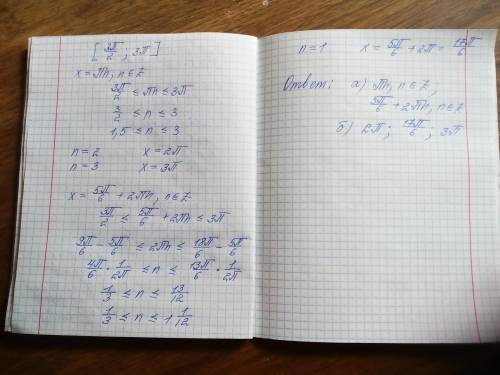 [3π/2 ; 3π]
x = πn, n∈Z
3π/2 ≤ πn ≤ 3π
3/2 ≤ n ≤ 3
1,5 ≤ n ≤ 3
n = 2 x = 2π
n = 3 x = 3π
x = 5π/6 + 2πn, n∈Z
3π/2 ≤ 5π/6 + 2πn ≤ 3π
9π/6 - 5π/6 ≤ 2πn ≤ 18π/6 - 5π/6
4π/6 · 1/2π ≤ n ≤ 13π/6 · 1/2π
1/3 ≤ n ≤ 13/12
1/3 ≤ n ≤ 1 1/12
n = 1 x = 5π/6 + 2π = 17π/6
Ответ: а) πn, n∈Z;
5π/6 + 2πn, n∈Z
б) 2π; 17π/6; 3π